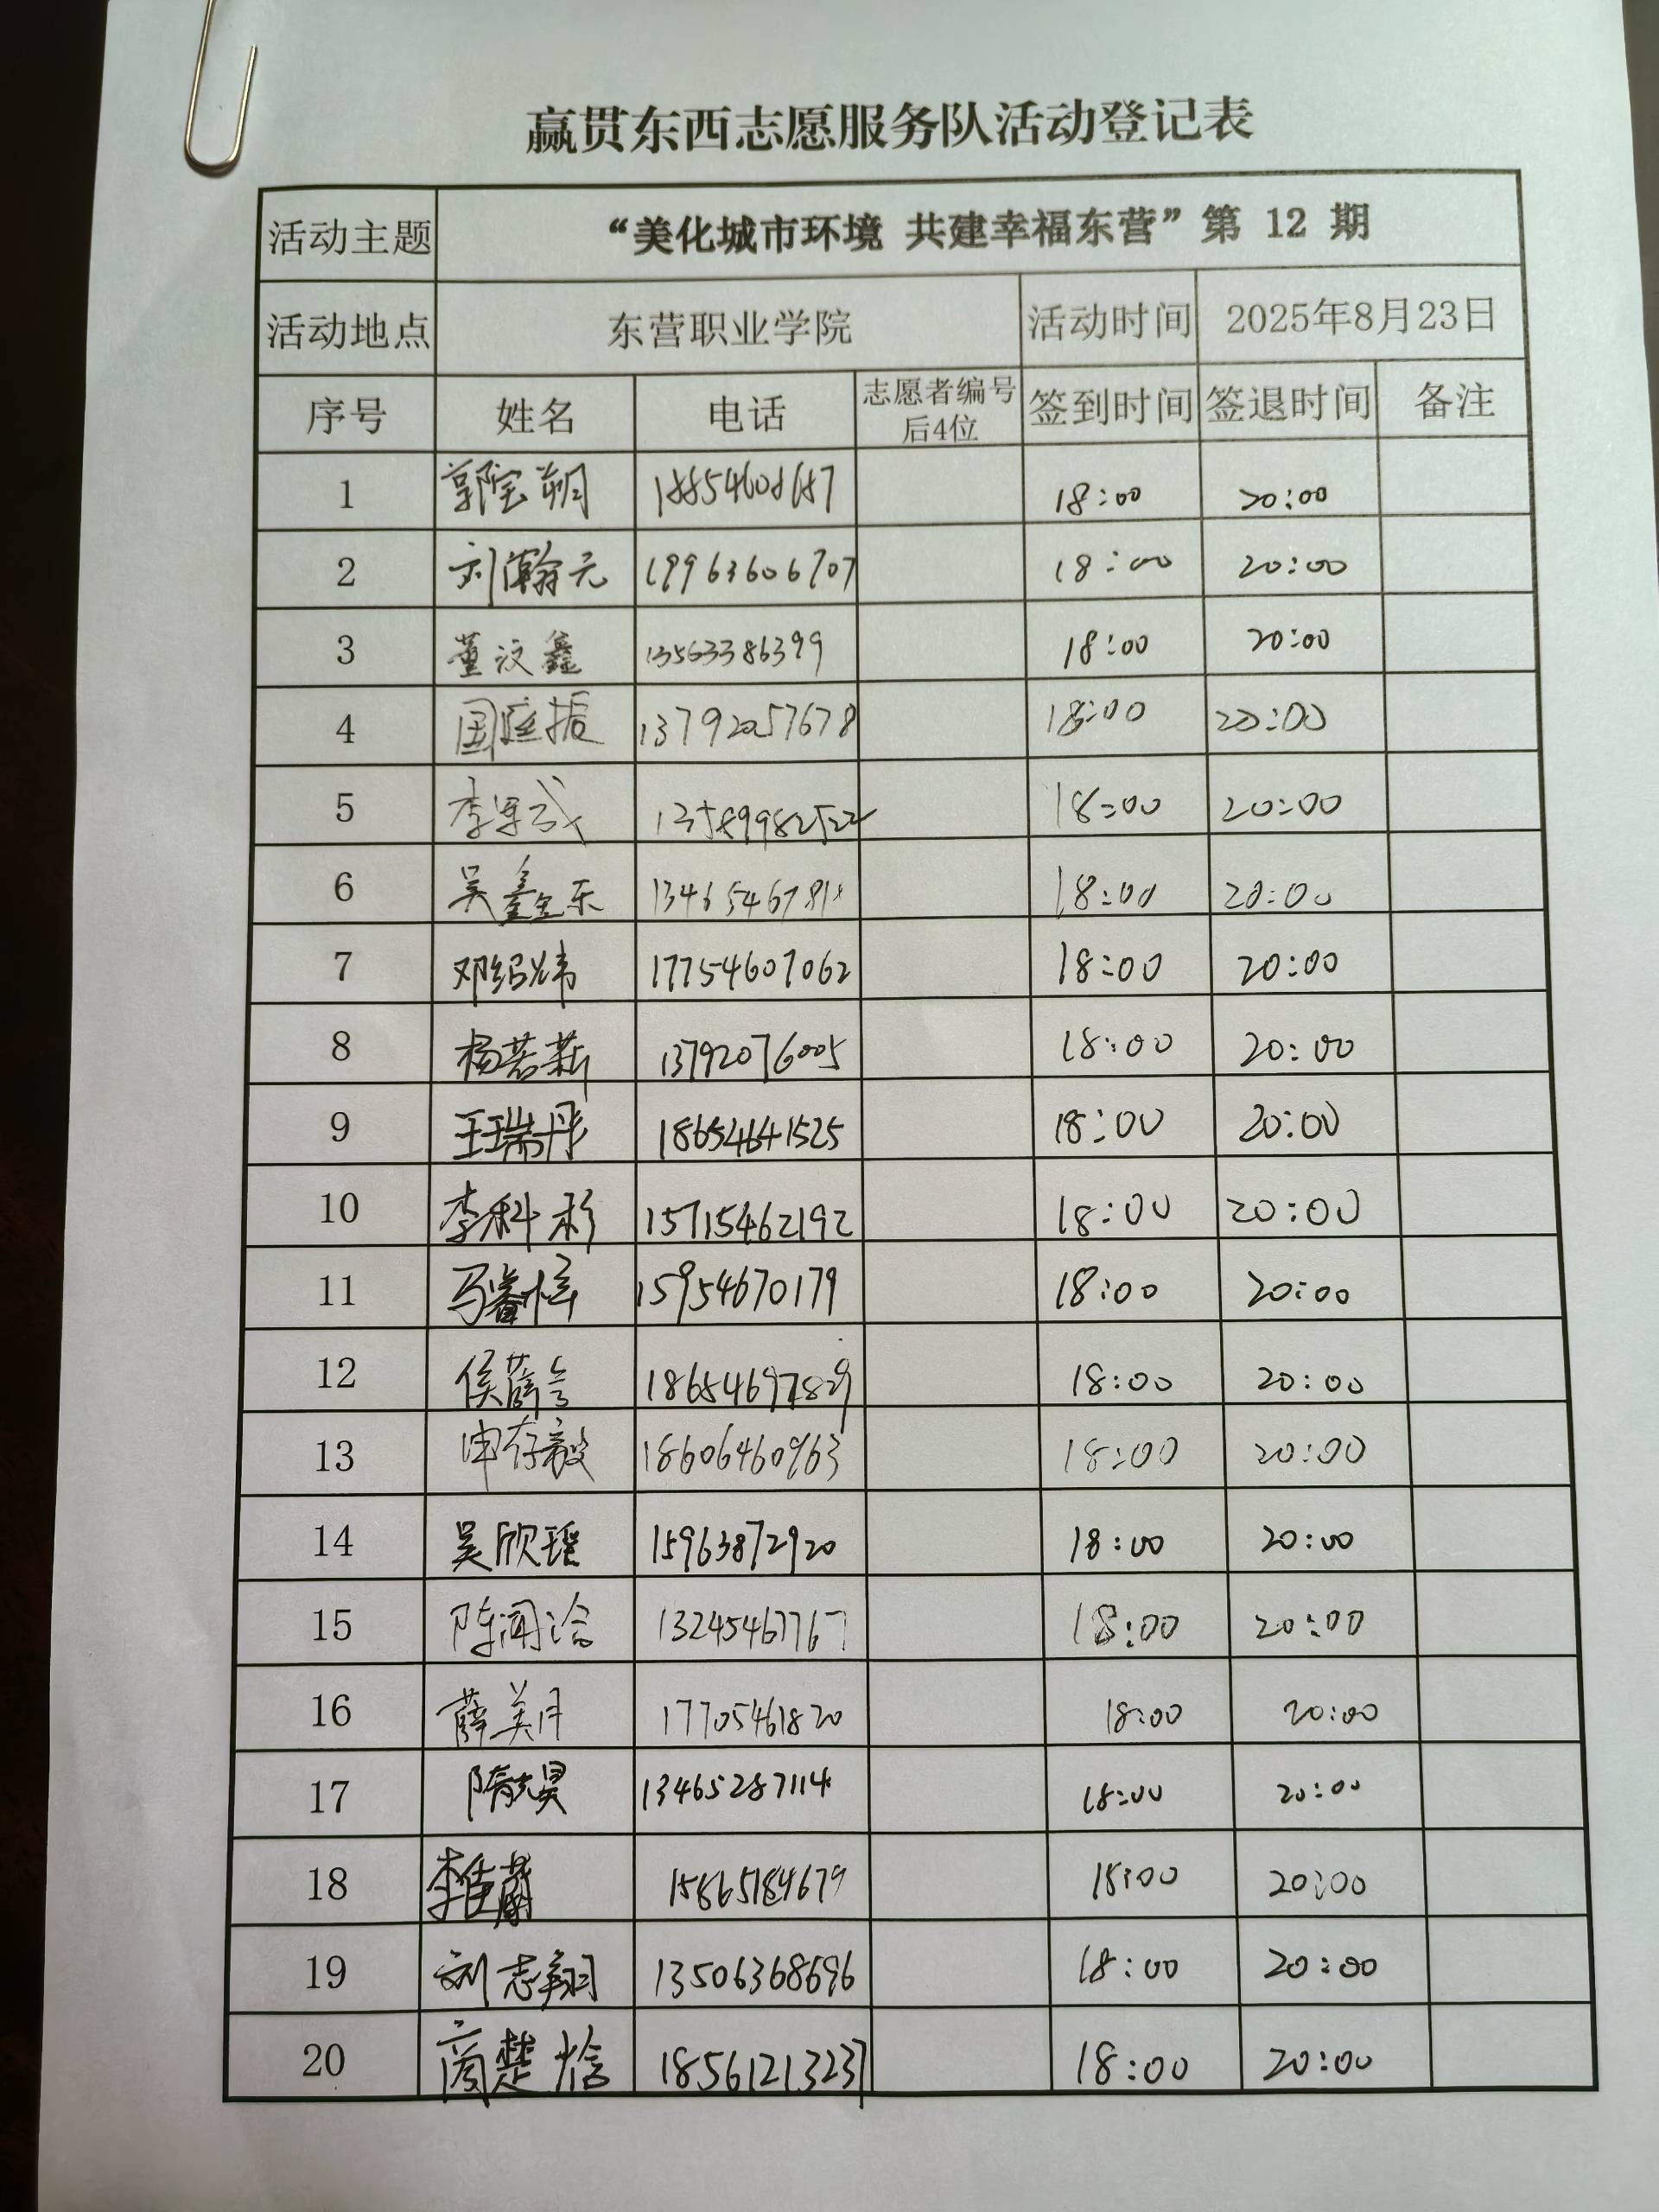 赢贯东西志愿服务队活动登记表
活动主题 “美化城市环境 共建幸福东营”第 12 期
活动地点 东营职业学院 活动时间 2025年8月23日
序号 姓名 电话 志愿者编号后4位 签到时间 签退时间 备注
1 郭宝朔 18854608687 18:00 20:00
2 刘瀚元 19963606707 18:00 20:00
3 董汶鑫 13563386399 18:00 20:00
4 国庭振 13792057678 18:00 20:00
5 李 13589982522 18:00 20:00
6 吴鑫东 18:00 20:00
7 邓绍炜 17754607062 18:00 20:00
8 杨若新 13792076005 18:00 20:00
9 王瑞丹 18654641525 18:00 20:00
10 李科杉 15715462192 18:00 20:00
11 马睿梓 15954670179 18:00 20:00
12 侯薛含 18:00 20:00
13 申存毅 18606460963 18:00 20:00
14 吴欣瑶 15963872920 18:00 20:00
15 陈闻洽 13245467767 18:00 20:00
16 薛美月 17705461820 18:00 20:00
17 隋昊 13465287114 18:00 20:00
18 李佳蔚 15865184679 18:00 20:00
19 刘志翔 13506368696 18:00 20:00
20 商楚恰 18561213237 18:00 20:00